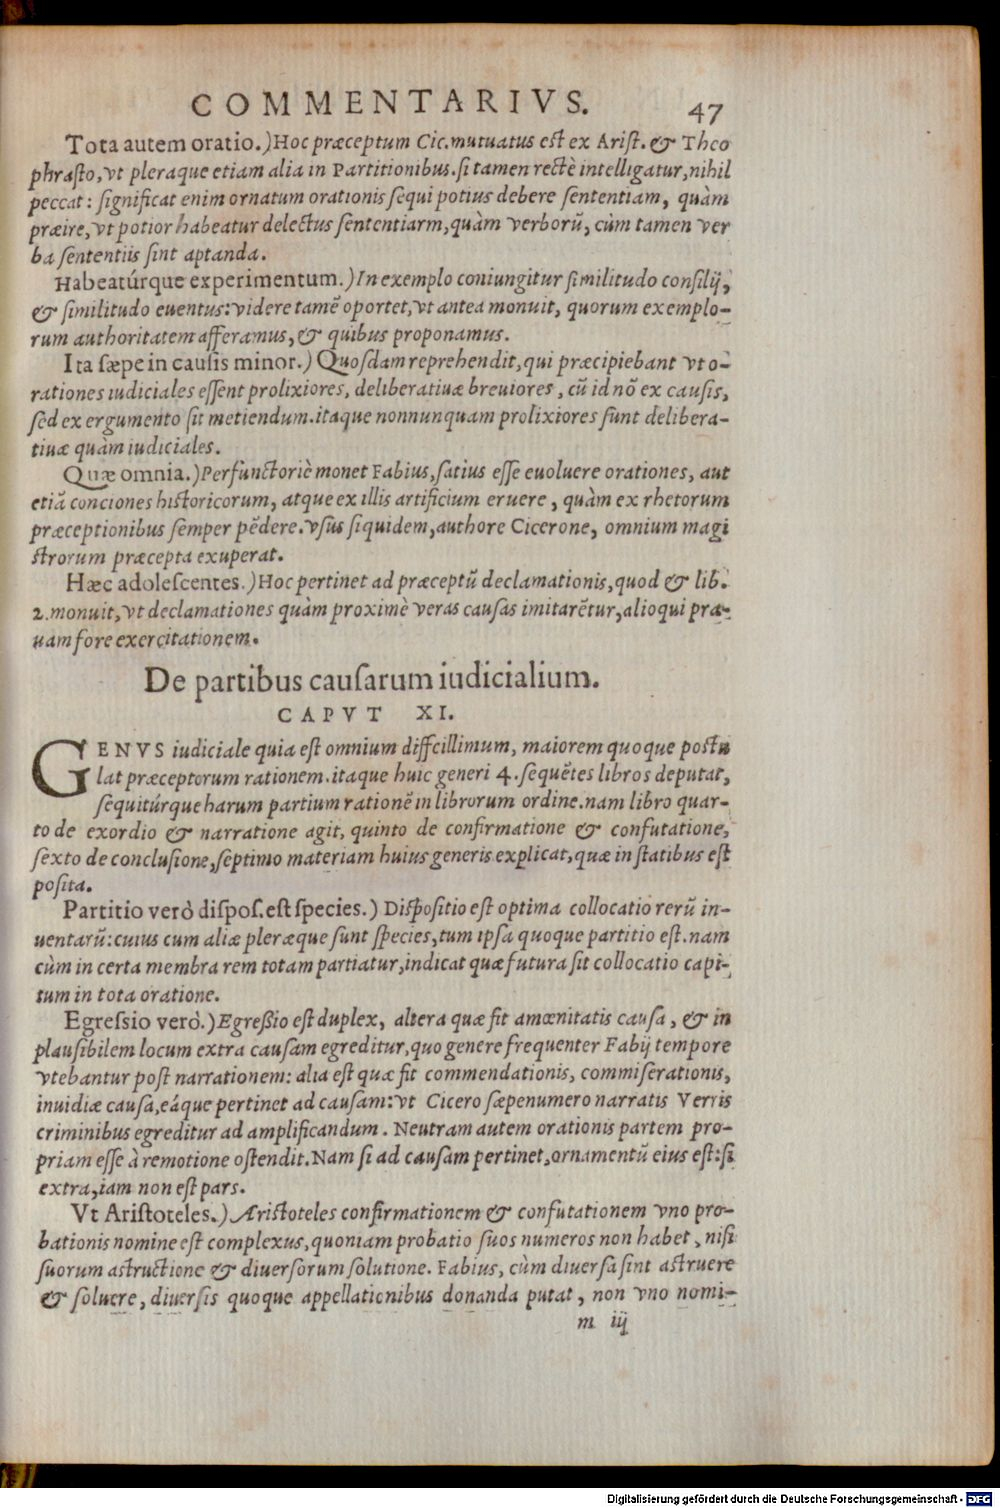 COMMENTARIVS. 47
Tota autem oratio.) Hoc præceptum Cic. mutuatus est ex Arist. & Theo
phrasto, vt pleraque etiam alia in Partitionibus. si tamen rectè intelligatur, nihil
peccat: significat enim ornatum orationis sequi potius debere sententiam, quàm
præire, vt potior habeatur delectus sententiarm, quàm verborũ, cùm tamen ver
ba sententiis sint aptanda.
Habeatúrque experimentum.) In exemplo coniungitur similitudo consilij,
& similitudo euentus: videre tamẽ oportet, vt antea monuit, quorum exemplo-
rum authoritatem afferamus, & quibus proponamus.
Ita sæpe in causis minor.) Quosdam reprehendit, qui præcipiebant vt o-
rationes iudiciales essent prolixiores, deliberatiuæ breuiores, cũ id nõ ex causis,
sed ex ergumento sit metiendum. itaque nonnunquam prolixiores sunt delibera-
tiuæ quàm iudiciales.
Quæ omnia.) Perfunctoriè monet Fabius, satius esse euoluere orationes, aut
etiã conciones historicorum, atque ex illis artificium eruere, quàm ex rhetorum
præceptionibus semper pẽdere. vsus siquidem, authore Cicerone, omnium magi
strorum præcepta exuperat.
Hæc adolescentes.) Hoc pertinet ad præceptũ declamationis, quod & lib.
2. monuit, vt declamationes quàm proximè veras causas imitarẽtur, alioqui pra-
uam fore exercitationem.
De partibus causarum iudicialium.
CAPVT XI.
GENVS iudiciale quia est omnium difficillimum, maiorem quoque postu
lat præceptorum rationem. itaque huic generi 4. sequẽtes libros deputat,
sequitúrque harum partium rationẽ in librorum ordine. nam libro quar-
to de exordio & narratione agit, quinto de confirmatione & confutatione,
sexto de conclusione, septimo materiam huius generis explicat, quæ in statibus est
posita.
Partitio verò dispos. est species.) Dispositio est optima collocatio rerũ in-
uentarũ: cuius cum aliæ pleræque sunt species, tum ipsa quoque partitio est. nam
cùm in certa membra rem totam partiatur, indicat quæ futura sit collocatio capi-
tum in tota oratione.
Egressio verò.) Egreßio est duplex, altera quæ fit amœnitatis causa, & in
plausibilem locum extra causam egreditur, quo genere frequenter Fabij tempore
vtebantur post narrationem: alia est quæ fit commendationis, commiserationis,
inuidiæ causa, eáque pertinet ad causam: vt Cicero sæpenumero narratis Verris
criminibus egreditur ad amplificandum. Neutram autem orationis partem pro-
priam esse à remotione ostendit. Nam si ad causam pertinet, ornamentũ eius est: si
extra, iam non est pars.
Vt Aristoteles.) Aristoteles confirmationem & confutationem vno pro-
bationis nomine est complexus, quoniam probatio suos numeros non habet, nisi
suorum astructione & diuersorum solutione. Fabius, cùm diuersa sint astruere
& soluere, diuersis quoque appellationibus donanda putat, non vno nomi-
m iij
Digitalisierung gefördert durch die Deutsche Forschungsgemeinschaft - DFG